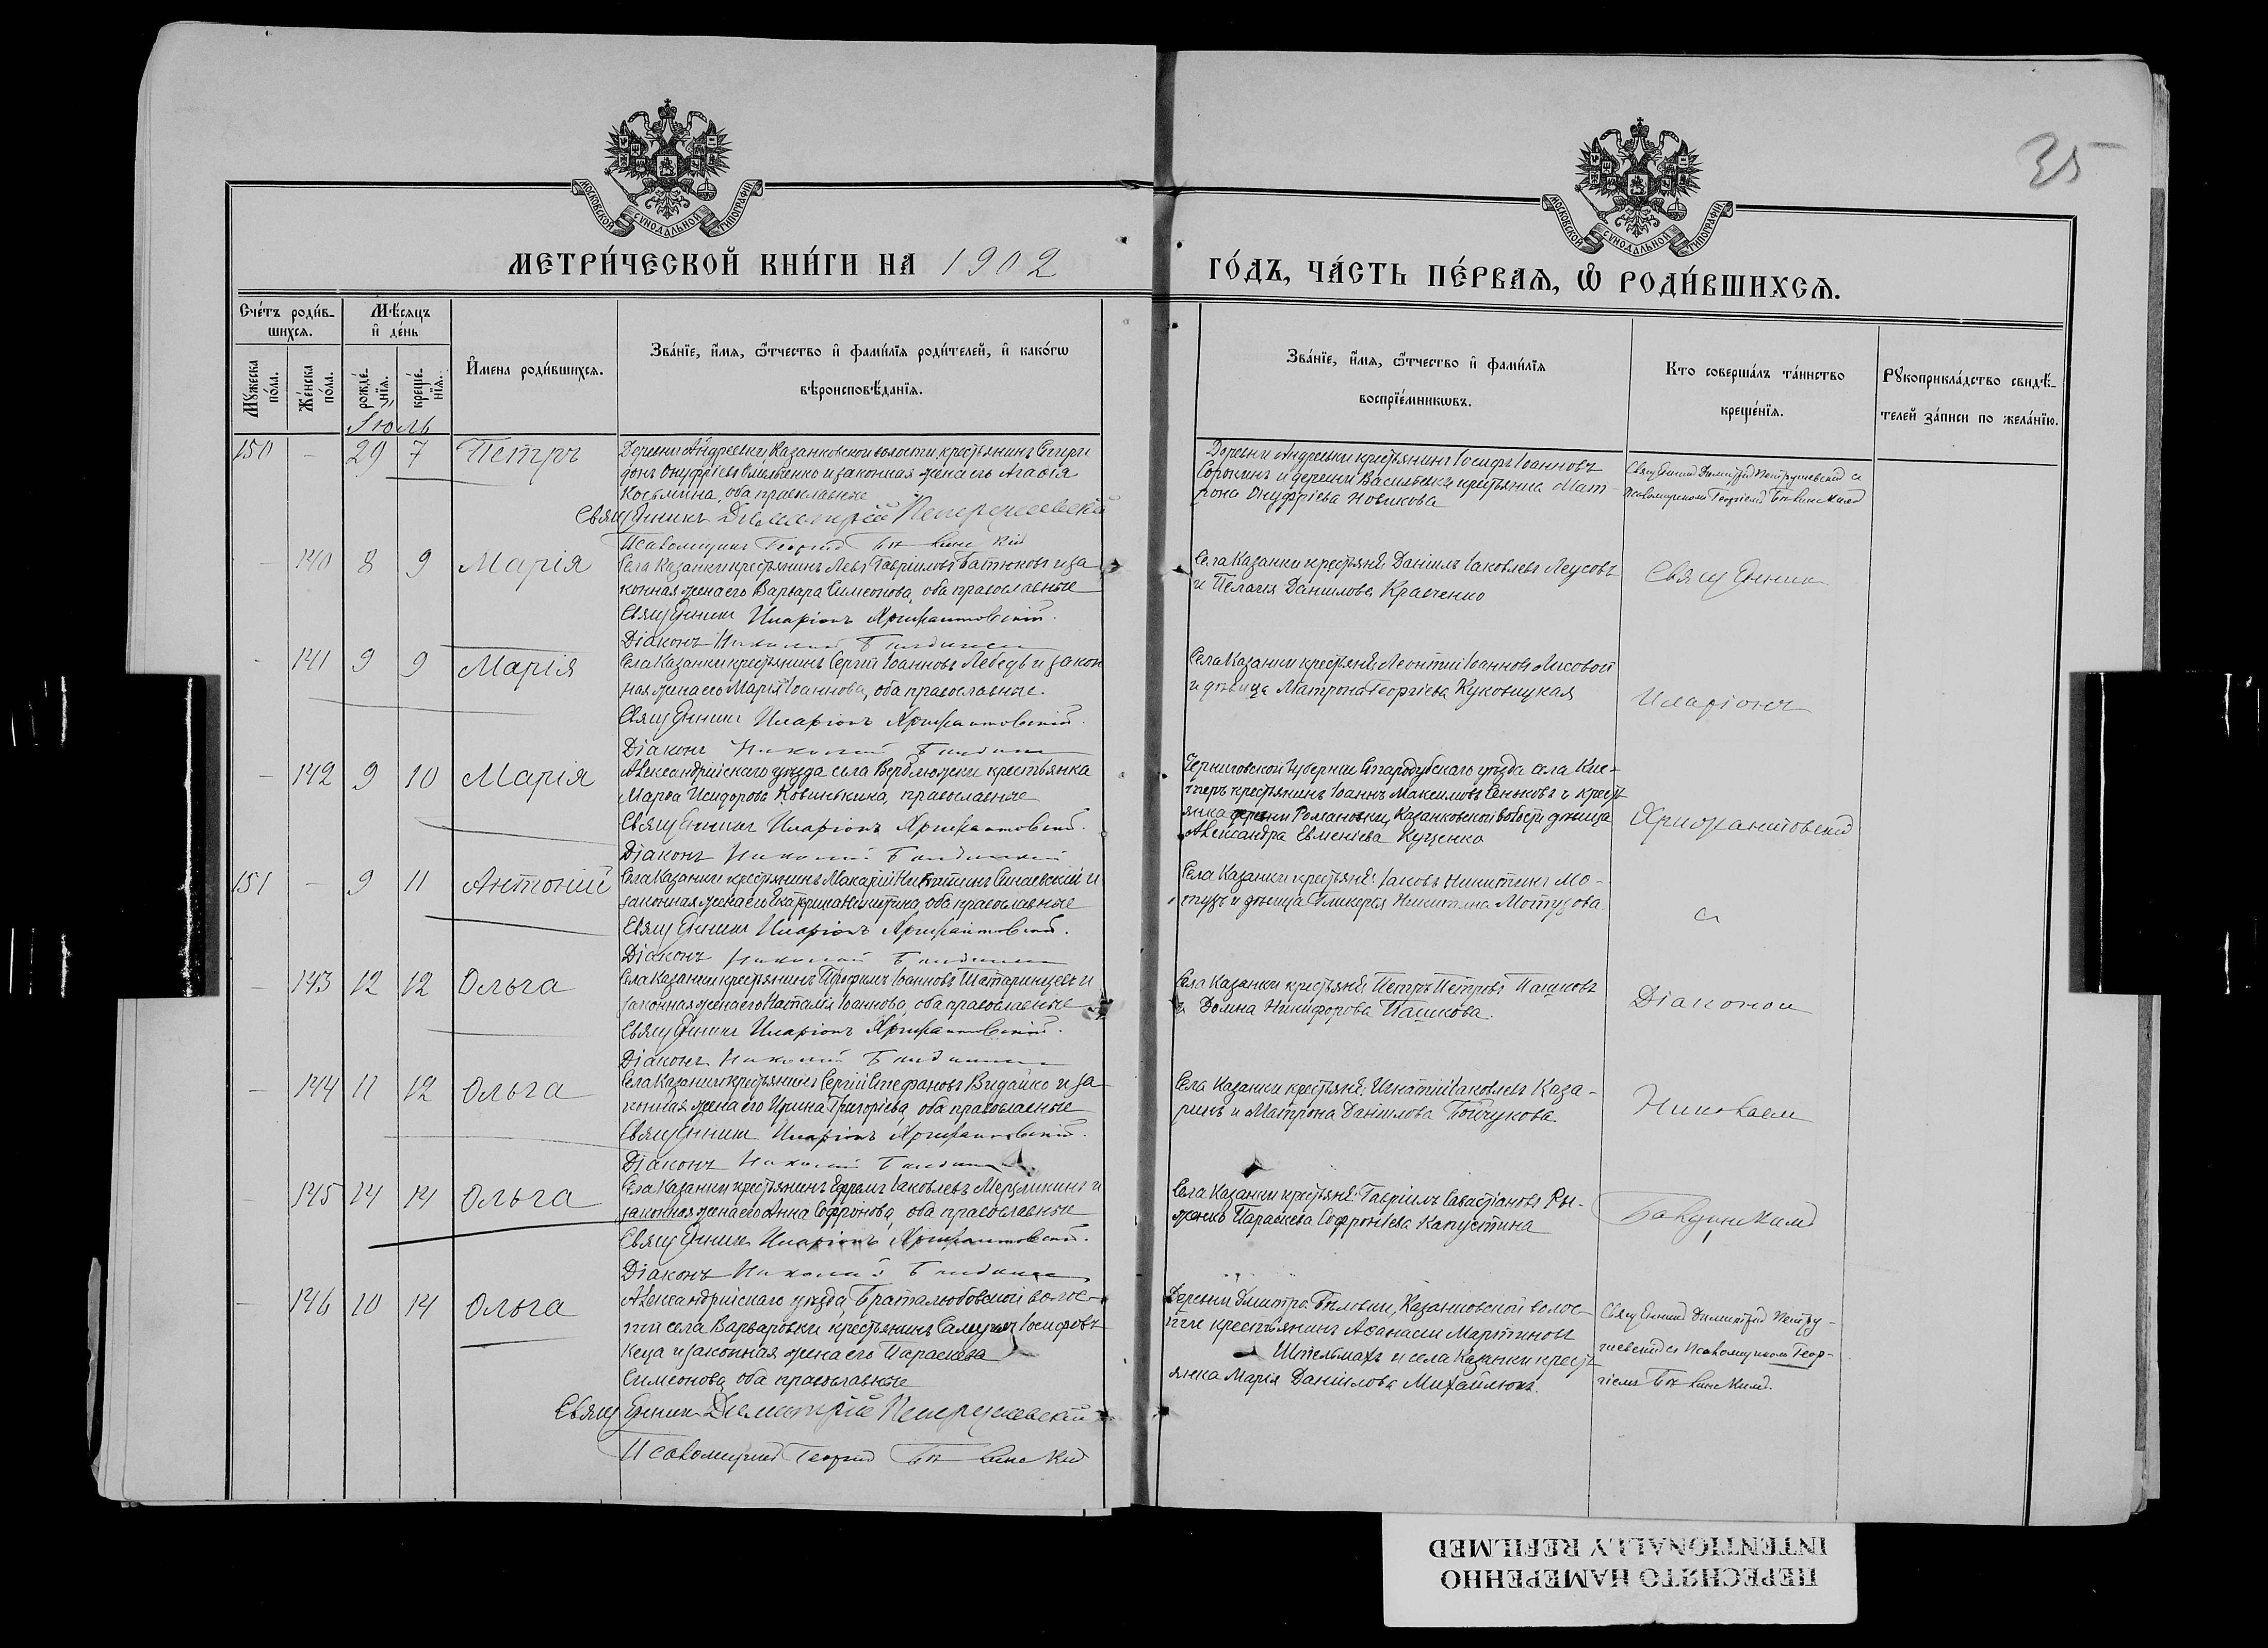 35
МОСКОВСКОЙ СУНОДАЛЬНОЙ ТИПОГРАФІИ
МОСКОВСКОЙ СУНОДАЛЬНОЙ ТИПОГРАФІИ
МЕТРИ́ЧЕСКОЙ КНИ́ГИ НА 1902
ГО́ДЪ, ЧА́СТЬ ПЕ́РВАѦ, Ѡ҆ РОДИ́ВШИХСѦ.
Сче́тъ роди́в-
шихсѧ.
Мꙋжеска по́ла.
Же́нска по́ла.
Мѣ́сѧцъ
и҆ де́нь
рожде́-
нїѧ.
креще́-
нїѧ.
Іюль
И҆мена роди́вшихсѧ.
Зва́нїе, и҆́мѧ, ѻ҆́тчество и҆ фами́лїѧ роди́телей, и҆ како́гѡ
вѣроисповѣ́данїѧ.
Зва́нїе, и҆́мѧ, ѻ҆́тчество и҆ фами́лїѧ
воспрїе́мникѡвъ.
Кто соверша́лъ та́инство
креще́нїѧ.
Рꙋкоприкла́дство свидѣ́-
телей за́писи по жела́нїю.
150 - 29 7 Петръ
Деревни Андреевки, Казанковской волости, крестьянинъ Спири
донъ Онуфріевъ Емельяненко и законная жена его Агафія
Косьмина, оба православные
Священникъ Димитрій Петрушевскій
Псаломщикъ Георгій
Деревни Андреевки крестьянинъ Іосифъ Іоанновъ
Сорокинъ и деревни Васильевки крестьянка Мат-
рона Онуфріева Новикова
Священникъ Димитрій Петрушевскій съ
псаломщикомъ Георгіемъ
- 140 8 9 Марія
Села Казанки крестьянинъ Левъ Гавріиловъ Батюковъ и за
конная жена его Варвара Симеонова, оба православные
Священникъ Иларіонъ
Діаконъ Николай
Села Казанки крестьяне: Даніилъ Іаковлевъ Леусовъ
и Пелагія Данилова Кравченко
Священникъ
- 141 9 9 Марія
Села Казанки крестьянинъ Сергій Іоанновъ Лебедь и закон
ная жена его Марія Іоаннова, оба православные.
Священникъ Иларіонъ
Діаконъ Николай
Села Казанки крестьяне: Леонтій Іоанновъ Лисовой
и дѣвица Матрона Георгіева Куковицкая
Иларіонъ
- 142 9 10 Марія
Александрійскаго уѣзда села Верблюжки крестьянка
Марѳа Исидорова Ковинькина, православные
Священникъ Иларіонъ
Діаконъ Николай
Черниговской губерніи Стародубскаго уѣзда села
крестьянинъ Іоаннъ Максимовъ Сеньковъ и крест
янка деревни Романовки, Казанковской волости дѣвица
Александра Евменіева Куценко
151 - 9 11 Антоній
Села Казанки крестьянинъ Макарій Никитинъ Синаевскій и
законная жена его Екатерина Никитина, оба православные
Священникъ Иларіонъ
Діаконъ Николай
Села Казанки крестьяне: Іаковъ Никитинъ Мо-
тузъ и дѣвица Гликерія Никитина Мотузова.
съ
- 143 12 12 Ольга
Села Казанки крестьянинъ Трофимъ Іоанновъ Шатаринцевъ и
законная жена его Наталія Іоаннова, оба православные
Священникъ Иларіонъ
Діаконъ Николай
Села Казанки крестьяне: Петръ Петровъ Пашковъ
и Домна Никифорова Пашкова.
Діакономъ
- 144 11 12 Ольга
Села Казанки крестьянинъ Сергій Стефановъ Видайко и за
конная жена его Ирина Григоріева, оба православные
Священникъ Иларіонъ
Діаконъ Николай
Села Казанки крестьяне: Игнатій Іаковлевъ Каза-
ринъ и Матрона Даніилова
Николаемъ
- 145 14 14 Ольга
Села Казанки крестьянинъ Ефремъ Іаковлевъ Мерзликинъ и
законная жена его Анна Софронова, оба православные
Священникъ Иларіонъ
Діаконъ Николай
Села Казанки крестьяне: Гавріилъ Севастіановъ Ры-
женко Параскева Софроніева Капустина
- 146 10 14 Ольга
Александрійскаго уѣзда Браталюбовской волос-
ти села Варваровки крестьянинъ Самуилъ Іосифовъ
Кеца и законная жена его Параскева
Симеонова, оба православные
Священникъ Димитрій Петрушевскій
Псаломщикъ Георгій
Деревни Дмитро-Бѣловки, Казанковской волос-
ти крестьянинъ Аѳанасій Мартиновъ
Штельмахъ и села Казанки крест
янка Марія Даніилова Михайлюкъ.
Священникъ Димитрій Петру-
шевскій съ псаломщикомъ Геор-
гіемъ
ПЕРЕСНЯТО НАМЕРЕННО
INTENTIONALLY REFILMED